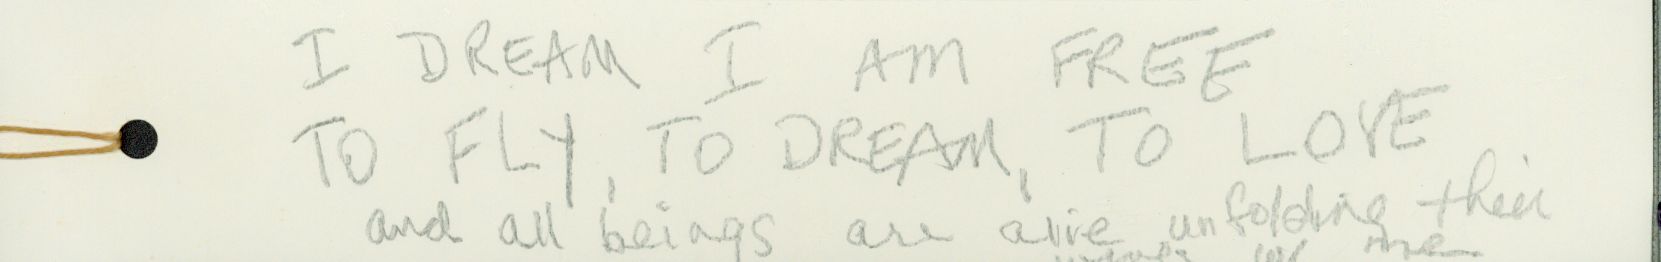 I DREAM I AM FREE
TO FLY, TO DREAM, TO LOVE
and all beings are alive unfolding their
me